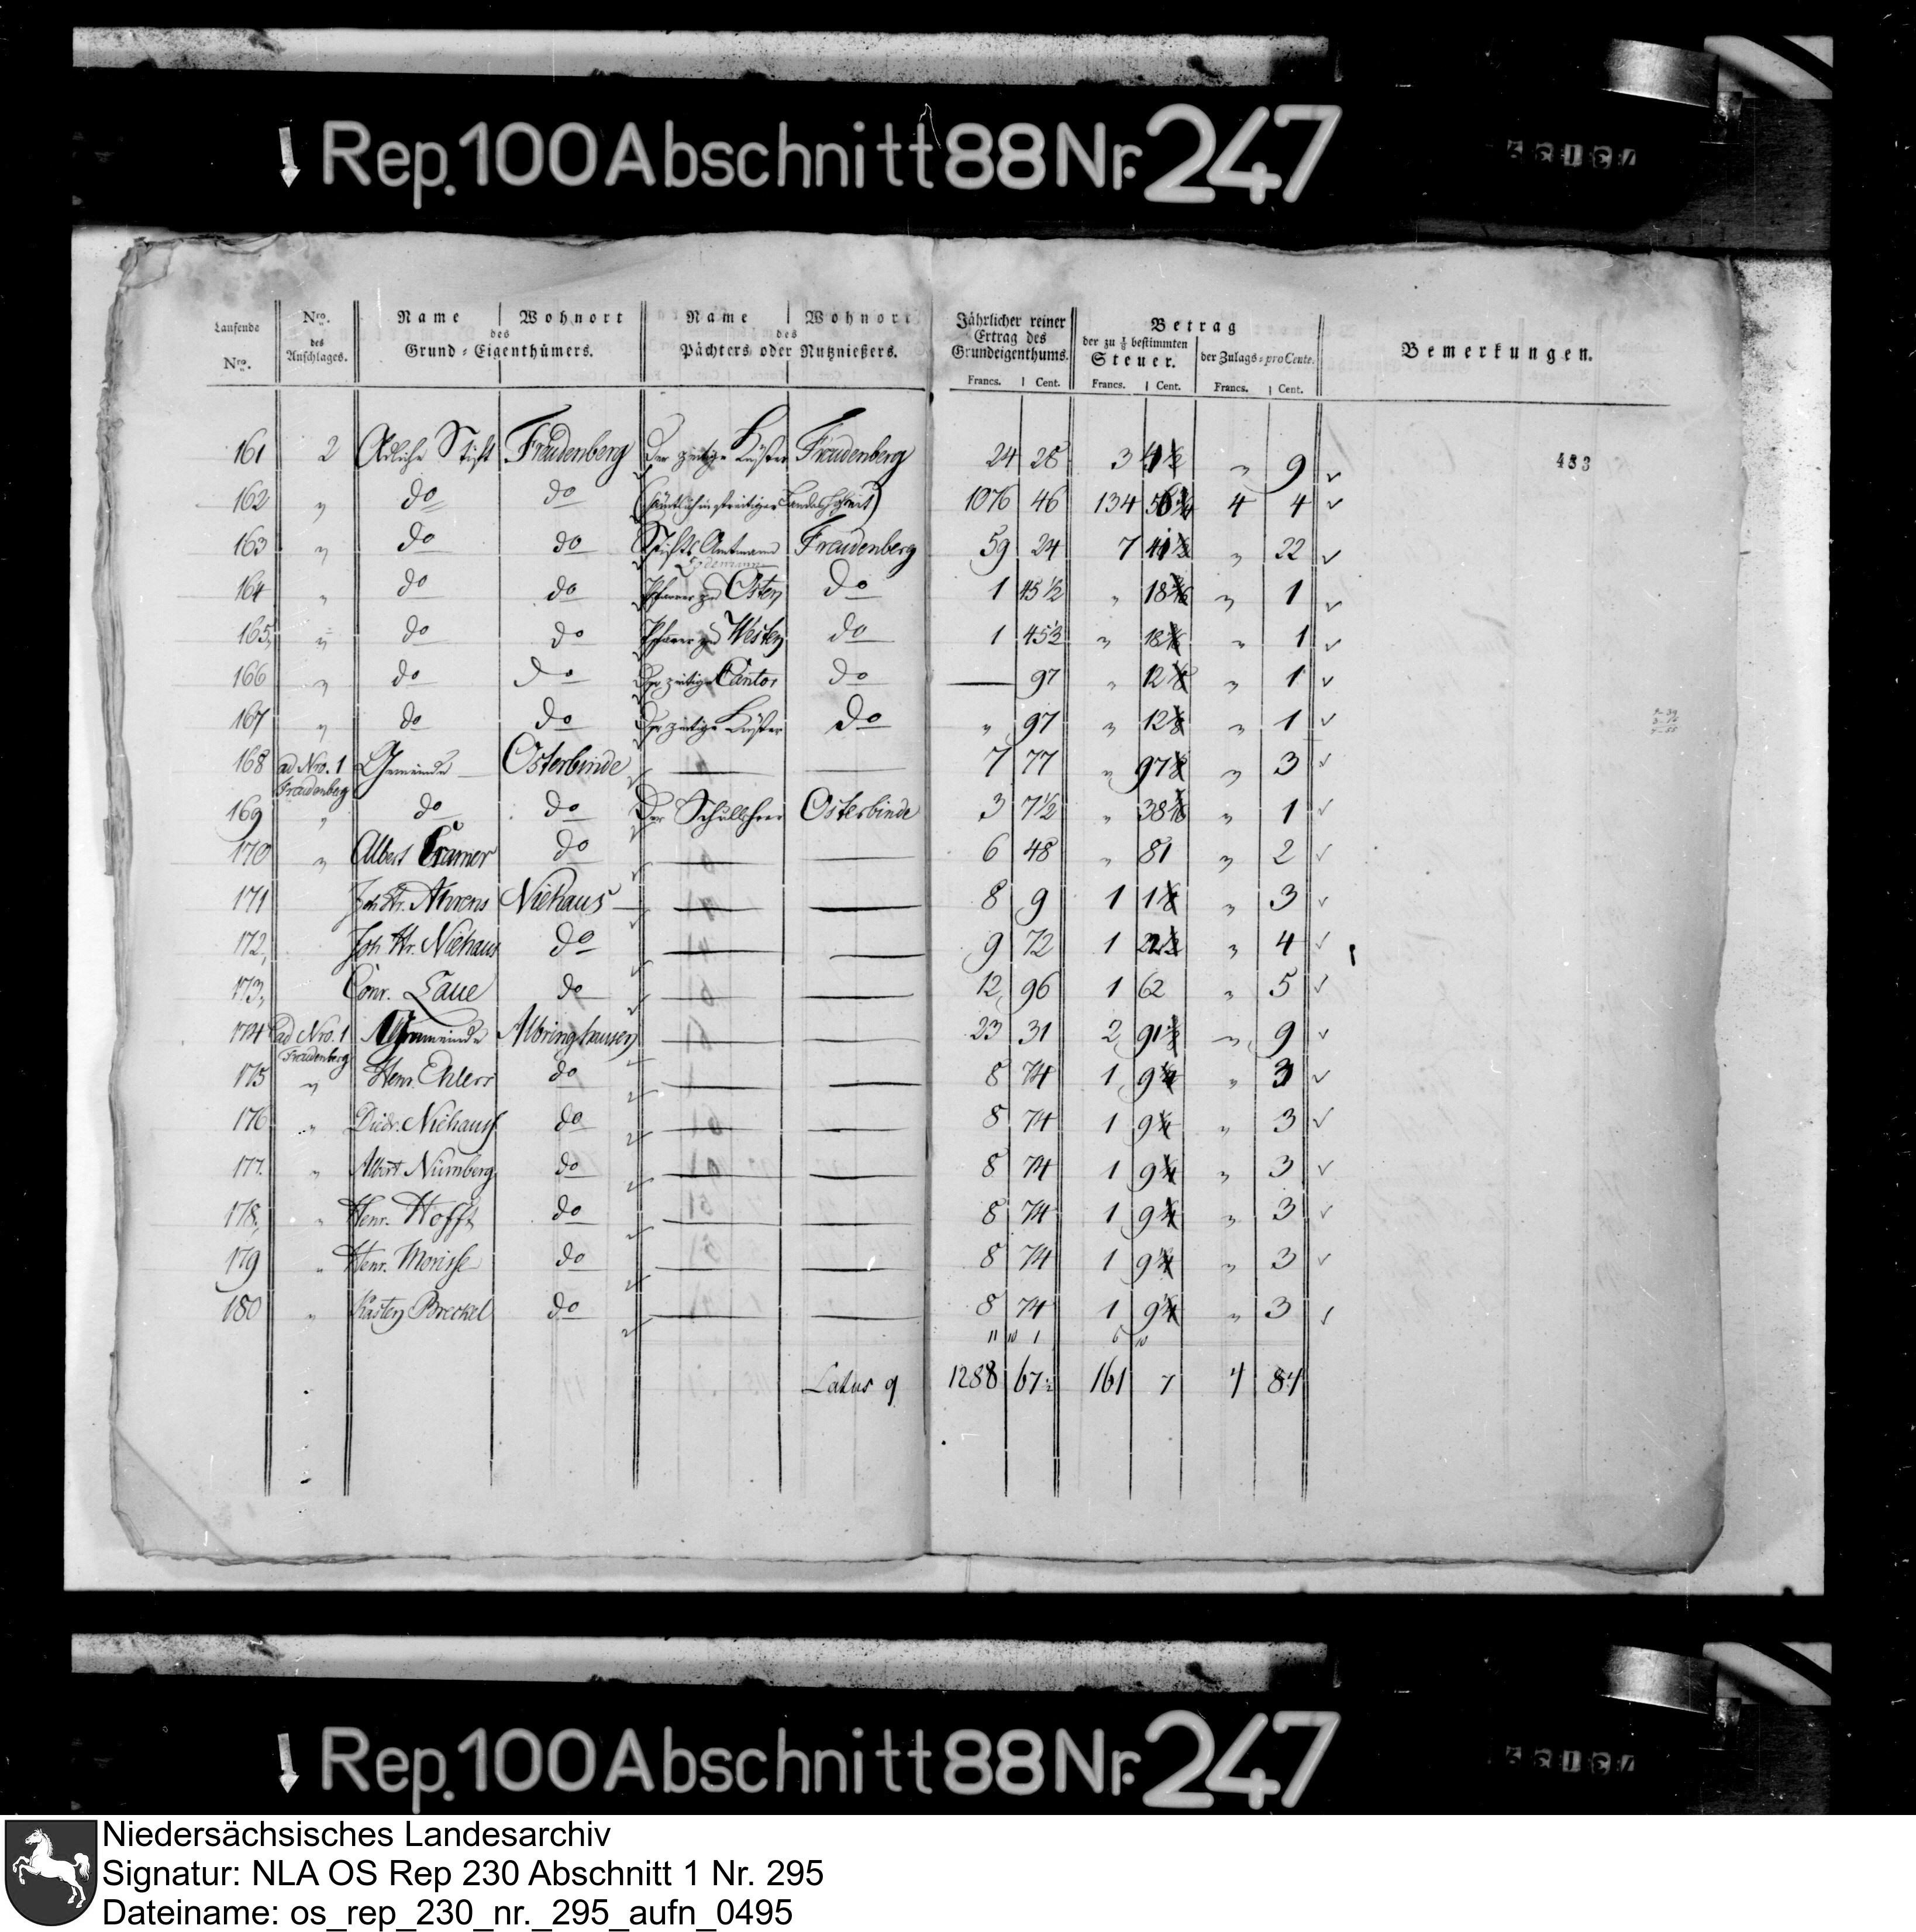 Rep. 100 Abschnitt 88 Nr. 247
Laufende Nro. | Nro. des Anschlages. | Name | Wohnort des Grund-Eigenthümers. | Name | Wohnort des Pächters oder Nutznießers. | Jährlicher reiner Ertrag des Grundeigenthums. | Betrag der zu ⅛ bestimmten Steuer. | der Zulags-pro Cente. | Bemerkungen.
Francs. | Cent. | Francs. | Cent. | Francs. | Cent.
161 2 Adliche Stift Freudenberg Der zeitige Küster Freudenberg 24 28 3 " 9 433
162 " do do 1076 46 134 4 4
163 " do do Stifts Amtmann Freudenberg 59 24 7 " 22
164 " do do Pfarrer zu Osten do 1 45½ " 18 " 1
165 " do do Pfarrer zu Westen do 1 45½ " 18 " 1
166 " do do Der zeitige Cantor do — 97 " 12 " 1
167 " do do Der zeitige Küster do " 97 " 12 " 1
168 ad Nro. 1 Freudenberg Gemeinde Osterbinde — — 7 77 " 97 " 3
169 " do do Der Schullehrer Osterbinde 3 7½ " 38 " 1
170 " Albert Cramer do — — 6 48 " 81 " 2
171 Joh Hr. Ahrens Niehaus — — 8 9 1 1 " 3
172 Joh Hr. Niehaus do — — 9 72 1 " 4
173 Conr. Laue do — — 12 96 1 62 " 5
174 ad Nro. 1 Freudenberg Gemeinde Albringhausen — — 23 31 2 91 " 9
175 " Henr. Ehlers do — — 8 74 1 9 " 3
176 " Diedr. Niehaus do — — 8 74 1 9 " 3
177 " Albert Nürnberg do — — 8 74 1 9 " 3
178 " Henr. Hofft do — — 8 74 1 9 " 3
179 " Henr. Morisse do — — 8 74 1 9 " 3
180 " Karsten Breckel do — — 8 74 1 9 " 3
11 10 1 6 10
Latus 9 1288 67½ 161 7 4 84
Rep. 100 Abschnitt 88 Nr. 247
Niedersächsisches Landesarchiv
Signatur: NLA OS Rep 230 Abschnitt 1 Nr. 295
Dateiname: os_rep_230_nr._295_aufn_0495